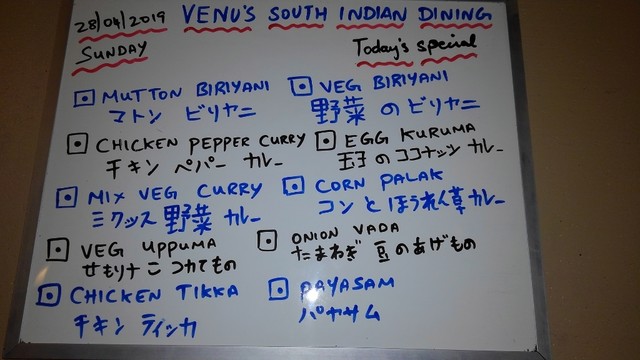 28/04/2019 VENU'S SOUTH INDIAN DINING
SUNDAY Today's special
MUTTON BIRIYANI
マトン ビリヤニ
VEG BIRIYANI
野菜 のビリヤニ
CHICKEN PEPPER CURRY
チキン ペパー カレー
EGG KURUMA
玉子のココナッツ カレー
MIX VEG CURRY
ミックス 野菜 カレー
CORN PALAK
コン と ほうれん草 カレー
VEG UPPUMA
せもりナ こ
ONION VADA
たまねぎ 豆のあげもの
CHICKEN TIKKA
チキン ティッカ
PAYASAM
パヤサム